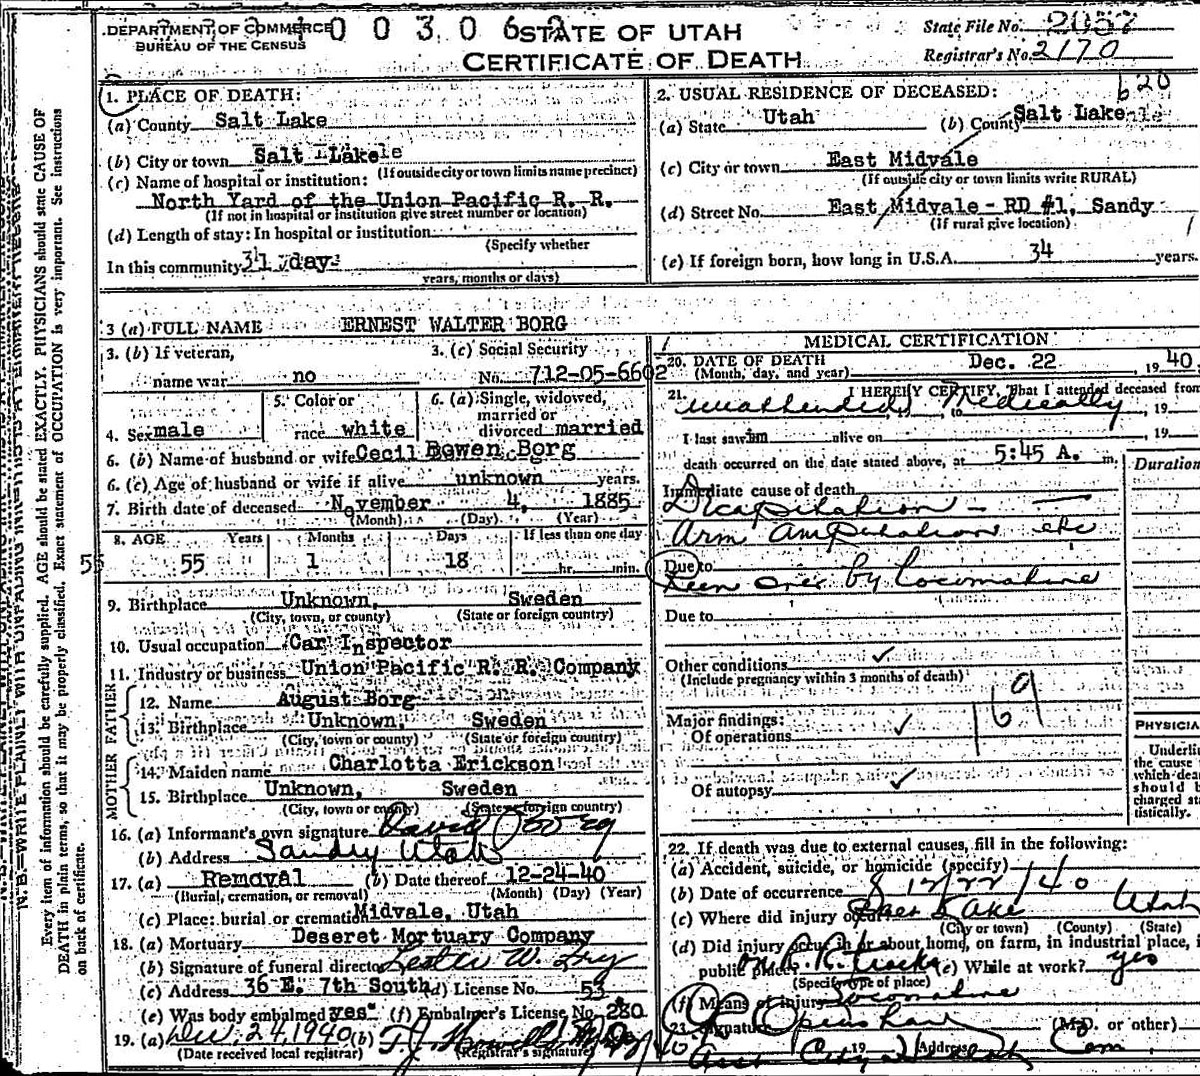 DEPARTMENT OF COMMERCE
BUREAU OF THE CENSUS
0 0 3 0 6 2
STATE OF UTAH
CERTIFICATE OF DEATH
State File No. 2057
Registrar's No. 2170
620
1. PLACE OF DEATH:
(a) County Salt Lake
(b) City or town Salt Lake
(If outside city or town limits name precinct)
(c) Name of hospital or institution:
North Yard of the Union Pacific R. R.
(If not in hospital or institution give street number or location)
(d) Length of stay: In hospital or institution
(Specify whether
In this community 31 days
years, months or days)
2. USUAL RESIDENCE OF DECEASED:
(a) State Utah (b) County Salt Lake
(c) City or town East Midvale
(If outside city or town limits write RURAL)
(d) Street No. East Midvale - RD #1, Sandy
(If rural give location)
(e) If foreign born, how long in U.S.A. 34 years.
3 (a) FULL NAME ERNEST WALTER BORG
3. (b) If veteran,
name war no
3. (c) Social Security
No. 712-05-6602
4. Sex male
5. Color or
race white
6. (a) Single, widowed,
married or
divorced married
6. (b) Name of husband or wife Cecil Bowen Borg
6. (c) Age of husband or wife if alive unknown years.
7. Birth date of deceased November 4, 1885
(Month) (Day) (Year)
8. AGE Years Months Days If less than one day
55 55 1 18 hr. min.
9. Birthplace Unknown, Sweden
(City, town, or county) (State or foreign country)
10. Usual occupation Car Inspector
11. Industry or business Union Pacific R. R. Company
FATHER
12. Name August Borg
13. Birthplace Unknown, Sweden
(City, town or county) (State or foreign country)
MOTHER
14. Maiden name Charlotta Erickson
15. Birthplace Unknown, Sweden
(City, town or county) (State or foreign country)
16. (a) Informant's own signature David Borg
(b) Address Sandy Utah
17. (a) Removal (b) Date thereof 12-24-40
(Burial, cremation, or removal) (Month) (Day) (Year)
(c) Place: burial or cremation Midvale, Utah
18. (a) Mortuary Deseret Mortuary Company
(b) Signature of funeral director Lester W.
(c) Address 36 E. 7th South (d) License No. 53
(e) Was body embalmed yes (f) Embalmer's License No. 280
19. (a) Dec. 24, 1940 (b) T. J. Howells
(Date received local registrar) (Registrar's signature)
MEDICAL CERTIFICATION
20. DATE OF DEATH Dec. 22 1940.
(Month, day, and year)
21. I HEREBY CERTIFY, That I attended deceased from
unattended Medically to , 19
I last saw him alive on , 19
death occurred on the date stated above, at 5:45 A. m.
Duration
Immediate cause of death
Decapitation -
Arm amputation etc
Due to
Run over by locomotive
Due to
Other conditions
(Include pregnancy within 3 months of death)
169
Major findings:
Of operations
Of autopsy
PHYSICIA
Underlin
the cause
which dea
should b
charged sta
tistically.
22. If death was due to external causes, fill in the following:
(a) Accident, suicide, or homicide (specify)
(b) Date of occurrence 12/22/40
(c) Where did injury occur Salt Lake Utah
(City or town) (County) (State)
(d) Did injury occur in or about home, on farm, in industrial place, i
public place? on R.R. tracks (e) While at work? yes
(Specify type of place)
(f) Means of injury Locomotive
23. Signature Openshaw (M.D. or other)
19 Address
N.B.—WRITE PLAINLY WITH UNFADING INK—THIS IS A PERMANENT RECORD
Every item of information should be carefully supplied. AGE should be stated EXACTLY. PHYSICIANS should state CAUSE OF
DEATH in plain terms, so that it may be properly classified. Exact statement of OCCUPATION is very important. See instructions
on back of certificate.